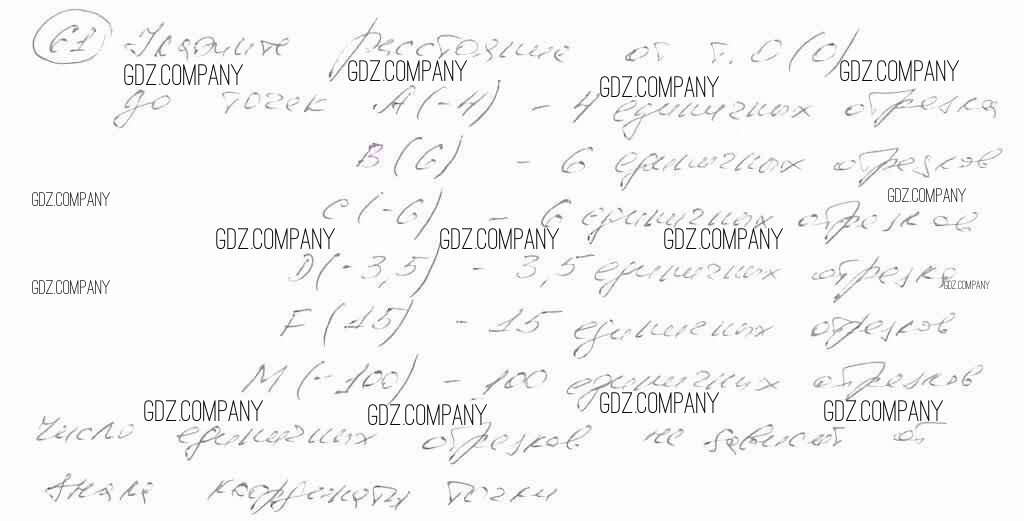 61 Укажите расстояние от т. O(0)
GDZ.COMPANY GDZ.COMPANY GDZ.COMPANY GDZ.COMPANY
до точек A(-4) - 4 единичных отрезка
B(6) - 6 единичных отрезков
GDZ.COMPANY GDZ.COMPANY
C(-6) - 6 единичных отрезков
GDZ.COMPANY GDZ.COMPANY GDZ.COMPANY
D(-3,5) - 3,5 единичных отрезка
GDZ.COMPANY GDZ.COMPANY
F(15) - 15 единичных отрезков
M(-100) - 100 единичных отрезков
GDZ.COMPANY GDZ.COMPANY GDZ.COMPANY GDZ.COMPANY
Число единичных отрезков не зависит от
знака координаты точки